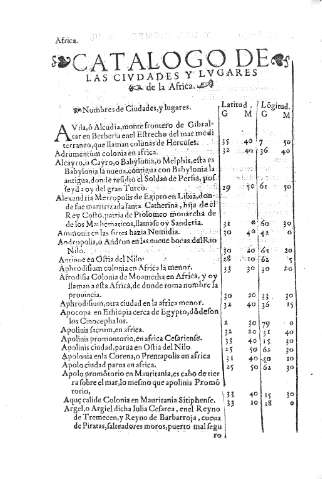 Africa.
CATALOGO DE
LAS CIVDADES Y LVGARES
de la Africa.
Nombres de Ciudades, y lugares. Latitud. Lõgitud.
G M G M
AVila, ò Alcudia, monte frontero de Gibral
tar en Berberia en el Estrecho del mar medi
terraneo, que llaman colunas de Hercules. 35 40 7 50
Adrumentum colonia en africa. 32 40 36 40
Alcayro, ò Cayro, o Babylonia, o Melphis, esta es
Babylonia la nueva, contigua con Babylonia la
antigua, donde residio el Soldan de Persia, y os
seydo y del gran Turco. 29 50 61 50
Alexandria Metropolis de Egipto en Libia, don-
de fue martirizada santa Catherina, hija de el
Rey Costo, patria de Ptolomeo monarcha de
de los Mathematicos, llamase o y Sanderia. 31 0 60 30
Ammonis en las sirtes hazia Numidia. 30 40 48 0
Andropolis, o Andron en las nueve bocas del Rio
Nilo. 30 40 61 20
Antinoe en Ostia del Nilo. 28 10 62 5
Aphrodisium colonia en Africa la menor. 33 30 30 20
Afrodisia Colonia de Monmecha en Africa, y oy
llaman a esta Africa, de donde toma nombre la
provincia. 30 20 33 30
Aphrodisium, otra ciudad en la africa menor. 32 40 36 15
Apocopa en Ethiopia cerca de Egypto, dõde son
los Cinocephalos. 2 30 79 0
Apolinis fanum, en africa. 32 20 31 40
Apolinis promontorio, en africa Cesariense. 33 40 15 30
Apolinis ciudad, para en Ostia del Nilo. 25 50 62 30
Apolonia en la Corena, o Pentapolis en africa 31 40 50 10
Apolo ciudad para en africa. 25 50 62 30
Apolo promõtorio en Mauritania, es cabo de tier
ra sobre el mar, lo mesmo que apolinis Promõ
torio, 33 40 15 30
Aque calide Colonia en Mauritania Sitiphense. 33 20 18 0
Argel, o Argiel dicha Iulia Cesarea, en el Reyno
de Tremecen, y Reyno de Barbarroja, cueua
de Piratas, salteadores moros, puerto mal segu
ro